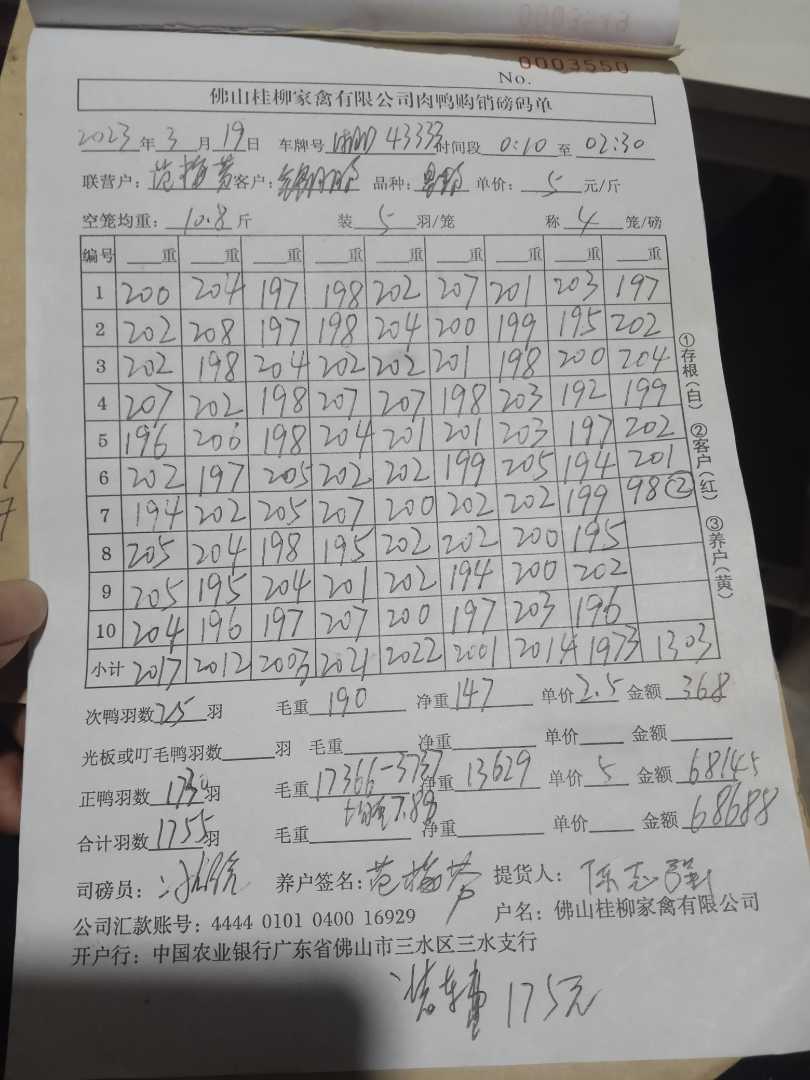 No. 0003550
佛山桂柳家禽有限公司肉鸭购销磅码单
2023年3月19日 车牌号 43333时间段 0:10 至 02:30
联营户：范梅芳客户： 品种： 单价：5元/斤
空笼均重：10.8斤 装5羽/笼 称4笼/磅
编号 重 重 重 重 重 重 重 重 重
1 200 204 197 198 202 207 201 203 197
2 202 208 197 198 204 200 199 195 202
3 202 198 204 202 202 201 198 200 204
4 207 202 198 207 207 198 203 192 199
5 196 206 198 204 201 201 203 197 202
6 202 197 205 202 202 199 205 194 201
7 194 202 205 207 200 202 202 199 98②
8 205 204 198 195 202 202 200 195
9 205 195 204 201 202 194 200 202
10 204 196 197 207 200 197 203 196
小计 2017 2012 2003 2021 2022 2001 2014 1973 1303
①存根（白） ②客户（红） ③养户（黄）
次鸭羽数25羽 毛重190 净重147 单价2.5 金额368
光板或叮毛鸭羽数羽 毛重 净重 单价 金额
正鸭羽数1730羽 毛重17366-3737 净重13629 单价5 金额68145
均重7.8斤
合计羽数1755羽 毛重 净重 单价 金额68688
司磅员： 养户签名：范梅芳 提货人：陈志强
公司汇款账号：4444 0101 0400 16929 户名：佛山桂柳家禽有限公司
开户行：中国农业银行广东省佛山市三水区三水支行
175元